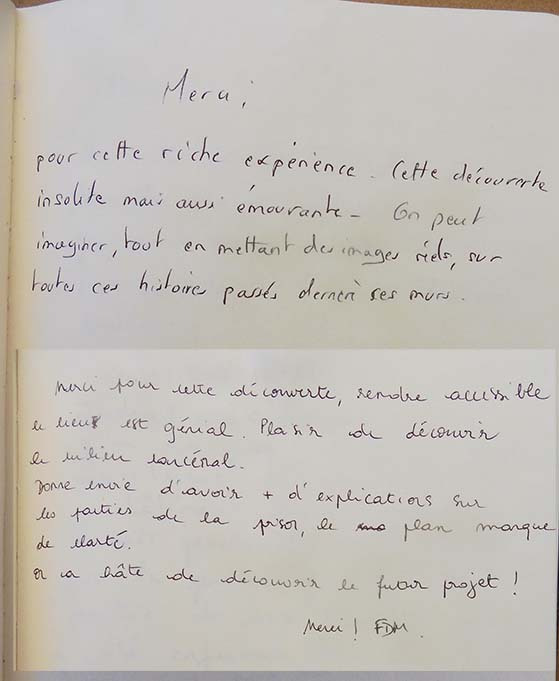 Merci,
pour cette riche expérience. Cette découverte
insolite mais aussi émouvante - On peut
imaginer, tout en mettant des images réels, sur
toutes ces histoires passés derrière ses murs.
Merci pour cette découverte, rendre accessible
le lieux est génial. Plaisir de découvrir
le milieu carcéral.
Donne envie d'avoir + d'explications sur
les parties de la prison, le plan manque
de clarté.
on a hâte de découvrir le futur projet !
Merci ! FDM.